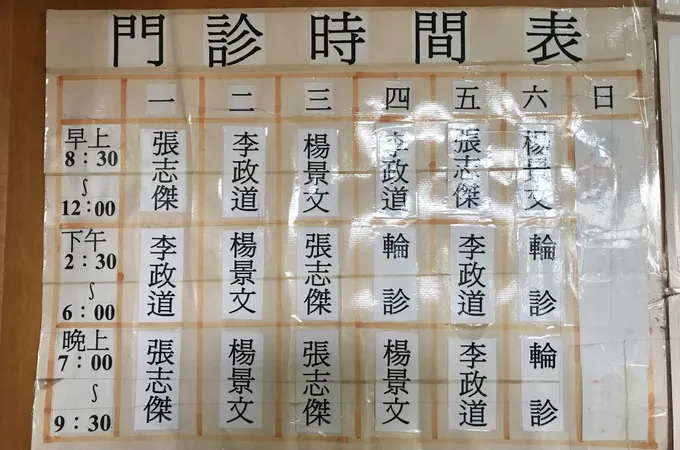 門診時間表
一 二 三 四 五 六 日
早上 8:30 ~ 12:00 張志傑 李政道 楊景文 李政道 張志傑 楊景文
下午 2:30 ~ 6:00 李政道 楊景文 張志傑 輪診 李政道 輪診
晚上 7:00 ~ 9:30 張志傑 楊景文 張志傑 楊景文 李政道 輪診